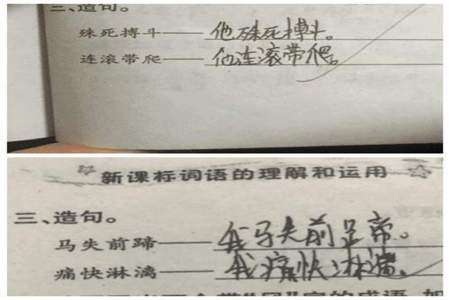 三、造句。
殊死搏斗——他殊死搏斗。
连滚带爬——他连滚带爬。
新课标词语的理解和运用
三、造句。
马失前蹄——我马失前蹄。
痛快淋漓——我痛快淋漓。